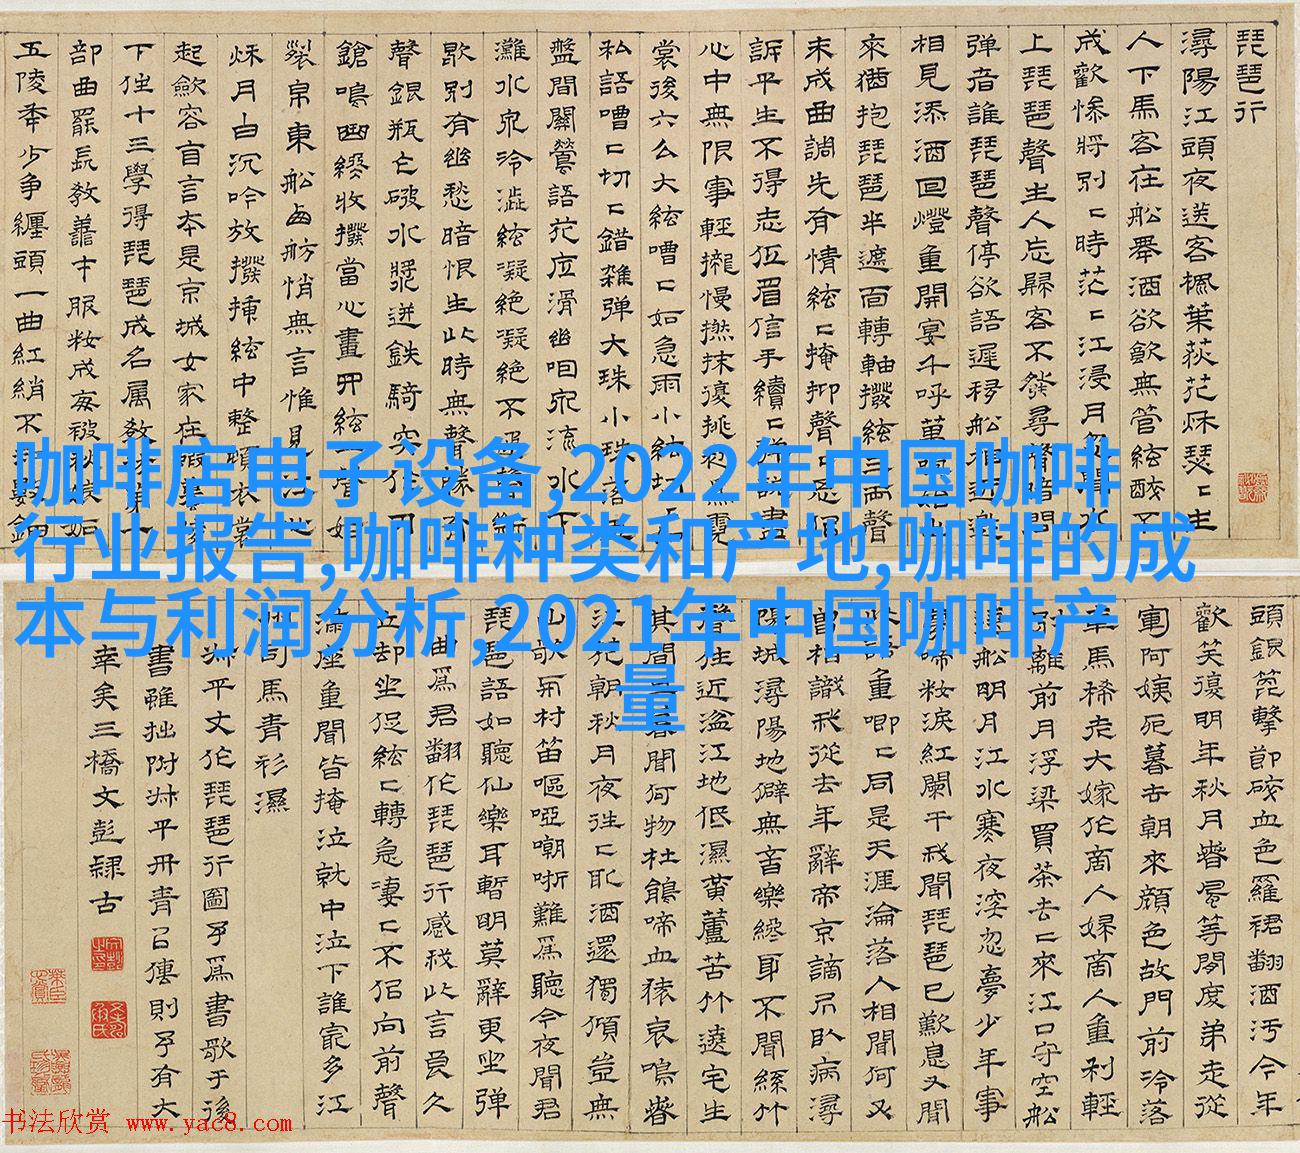 琵琶行
潯陽江頭夜送客楓葉荻花秌瑟〻主
人下馬客在船舉酒欲飲無管絃醉不
成歡慘將別〻時茫〻江浸月忽聞水
上琵琶聲主人忘歸客不發尋聲暗問
彈者誰琵琶聲停欲語遲移船相近邀
相見添酒回燈重開宴千呼萬喚始出
來猶抱琵琶半遮面轉軸撥絃三兩聲
未成曲調先有情絃〻掩抑聲〻思似
訴平生不得志低眉信手續〻彈說盡
心中無限事輕攏慢撚抹復挑初為霓
裳後六么大絃嘈〻如急雨小絃切〻
私語嘈〻切〻錯雜弹大珠小珠落玉
盤間關鶯語花底滑幽咽泉流水下
灘水泉冷澁絃凝絶凝絶不通聲漸
歇別有幽愁暗恨生此時無聲勝有
聲銀瓶乍破水漿迸鉄騎突作刀
鎗鳴曲終收撥當心畫四絃一聲如
裂帛東船西舫悄無言惟見江心
秌月白沉吟放撥挿絃中整頓衣裳
起斂容自言本是京城女家在蝦蟇
下住十三學得琵琶成名属教坊第一
部曲罷長教善才服粧成每被秋娘妬
五陵年少争纏頭一曲紅綃不知數鈿
咖啡店电子设备,2022年中国咖啡
行业报告,咖啡种类和产地,咖啡的成
本与利润分析,2021年中国咖啡产
量
頭銀篦擊節碎血色羅裙翻酒汚今年
歡笑復明年秋月春風等閒度弟走從
軍阿姨死暮去朝來顔色故門前冷落
車馬稀老大嫁作商人婦商人重利輕
別離前月浮梁買茶去〻來江口守空船
遶船明月江水寒夜深忽夢少年事
夢啼粧淚紅闌干我聞琵琶已歎息又聞
此語重唧〻同是天涯淪落人相聞何必
曾相識我從去年辭帝京謫居臥病潯
陽城潯陽地僻無音樂終歲不聞絲竹
聲住近湓江地低濕黄蘆苦竹遶宅生
其間旦暮聞何物杜鵑啼血猿哀鳴春
江花朝秋月夜往〻取酒還獨傾豈無
山歌與村笛嘔啞嘲哳難爲聽今夜聞君
琵琶語如聽仙樂耳暫明莫辭更坐弹
一曲爲君翻作琵琶行感我此言良久
立却坐促絃〻轉急凄〻不似向前聲
滿座重聞皆掩泣就中泣下誰寂多江
州司馬青衫濕
叔平丈作琵琶行圖予爲書歌于後
書雖拙附叔平丹青以傳則予有大
幸矣三橋文彭隸古
书法欣赏 www.yac8.com